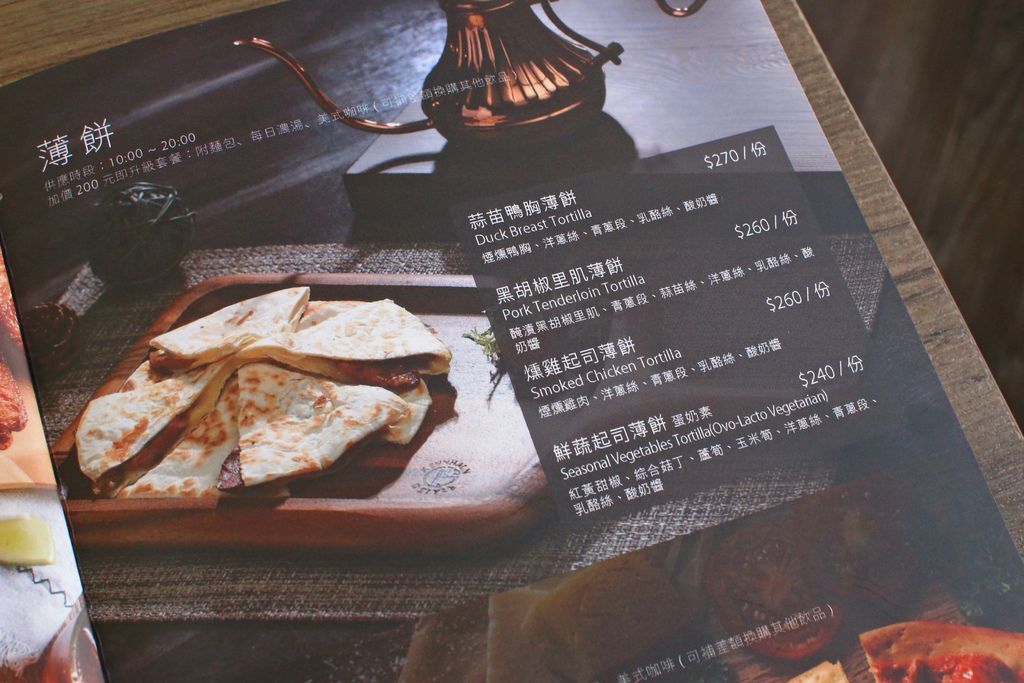 薄餅
供應時段：10:00 ~ 20:00
加價 200 元即升級套餐：附麵包、每日濃湯、美式咖啡（可補差額換購其他飲品）
$270 / 份
蒜苗鴨胸薄餅
Duck Breast Tortilla
煙燻鴨胸、洋蔥絲、青蔥段、乳酪絲、酸奶醬
$260 / 份
黑胡椒里肌薄餅
Pork Tenderloin Tortilla
醃漬黑胡椒里肌、青蔥段、蒜苗絲、洋蔥絲、乳酪絲、酸
奶醬
$260 / 份
燻雞起司薄餅
Smoked Chicken Tortilla
煙燻雞肉、洋蔥絲、青蔥段、乳酪絲、酸奶醬
$240 / 份
鮮蔬起司薄餅 蛋奶素
Seasonal Vegetables Tortilla(Ovo-Lacto Vegetarian)
紅黃甜椒、綜合菇丁、蘆筍、玉米筍、洋蔥絲、青蔥段、
乳酪絲、酸奶醬
美式咖啡（可補差額換購其他飲品）